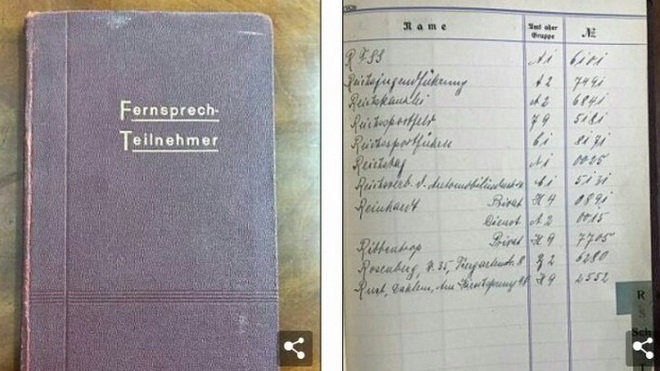 Fernsprech-
Teilnehmer
Name Amt oder Gruppe №
RFSS A1 6101
Reichsjugendführung A2 7491
Reichskanzlei A2 6841
Reichssportfeld J9 5181
Reichssportführer C1 8171
Reichstag A1 0025
Reichsverb. d. Automobilindustrie C1 5131
Reinhardt Privat H9 0891
Dienst A2 0015
Ribbentrop Privat H9 7705
Rosenberg, W. 35, Tiergartenstr. 8 B2 6280
Rust, Dahlem, Am 4552
R
S
Sch